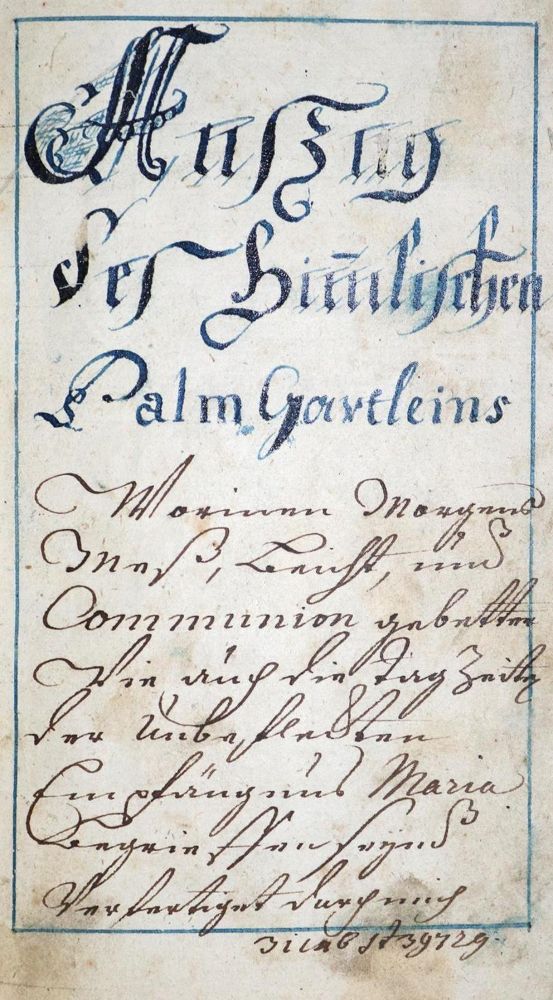 Auszug
des Him̄lischen
Palm Gartleins
Worinen Morgens
Meß, Beicht, und
Communion gebetter
Wie auch die Tag Zeitē
der Unbeflecten
Empfängnus Maria
Begrieffen seynd
Verfertiget durch mich